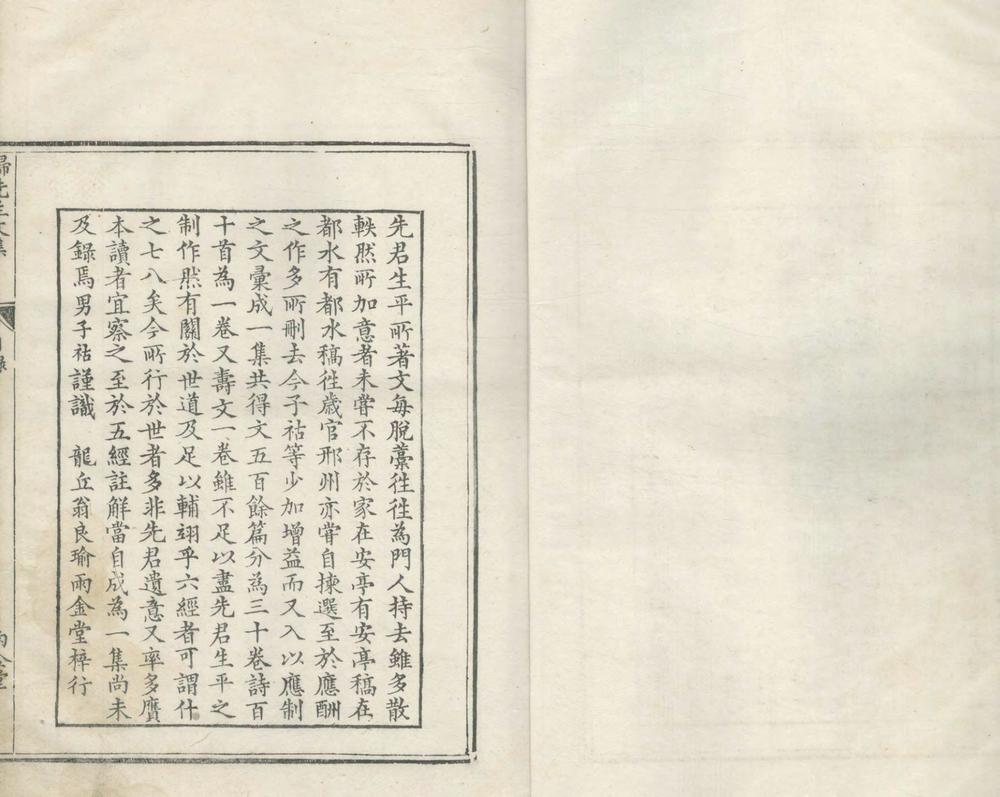 先君生平所著文每脫藁徃徃為門人持去雖多散
軼然所加意者未嘗不存於家在安亭有安亭稿在
都水有都水稿徃歳官邢州亦嘗自揀選至於應酬
之作多所刪去今子祜等少加增益而又入以應制
之文彙成一集共得文五百餘篇分為三十卷詩百
十首為一卷又壽文一卷雖不足以盡先君生平之
制作然有關於世道及足以輔翊乎六經者可謂什
之七八矣今所行於世者多非先君遺意又率多贋
本讀者宜察之至於五經註解當自成為一集尚未
及錄焉男子祜謹識　龍丘翁良瑜雨金堂梓行
歸先生文集
目錄
雨金堂